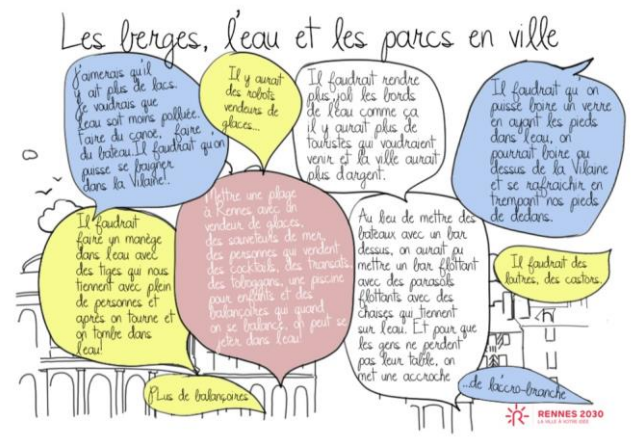 Les berges, l'eau et les parcs en ville
J'aimerais qu'il
y ait plus de lacs.
Je voudrais que
l'eau soit moins polluée.
Faire du canoë, faire
du bateau. Il faudrait qu'on
puisse se baigner
dans la Vilaine!..
Il y aurait
des robots
vendeurs de
glaces...
Il faudrait rendre
plus joli les bords
de l'eau comme ça
il y aurait plus de
touristes qui voudraient
venir et la ville aurait
plus d'argent.
Il faudrait qu'on
puisse boire un verre
en ayant les pieds
dans l'eau, on
pourrait boire au
dessus de la Vilaine
et se rafraichir en
trempant nos pieds
de dedans.
Il faudrait
faire un manège
dans l'eau avec
des tiges qui nous
tiennent avec plein
de personnes et
après on tourne et
on tombe dans
l'eau!
Mettre une plage
à Rennes avec un
vendeur de glaces,
des sauveteurs de mer,
des personnes qui vendent
des cocktails, des transats,
des toboggans, une piscine
pour enfants et des
balançoires qui quand
on se balance, on peut se
jeter dans l'eau!
Au lieu de mettre des
bateaux avec un bar
dessus, on aurait pu
mettre un bar flottant
avec des parasols
flottants avec des
chaises qui tiennent
sur l'eau. Et pour que
les gens ne perdent
pas leur table, on
met une accroche
Il faudrait des
loutres, des castors.
Plus de balançoires
...de l'accro-branche
RENNES 2030
LA VILLE À VOTRE IDÉE